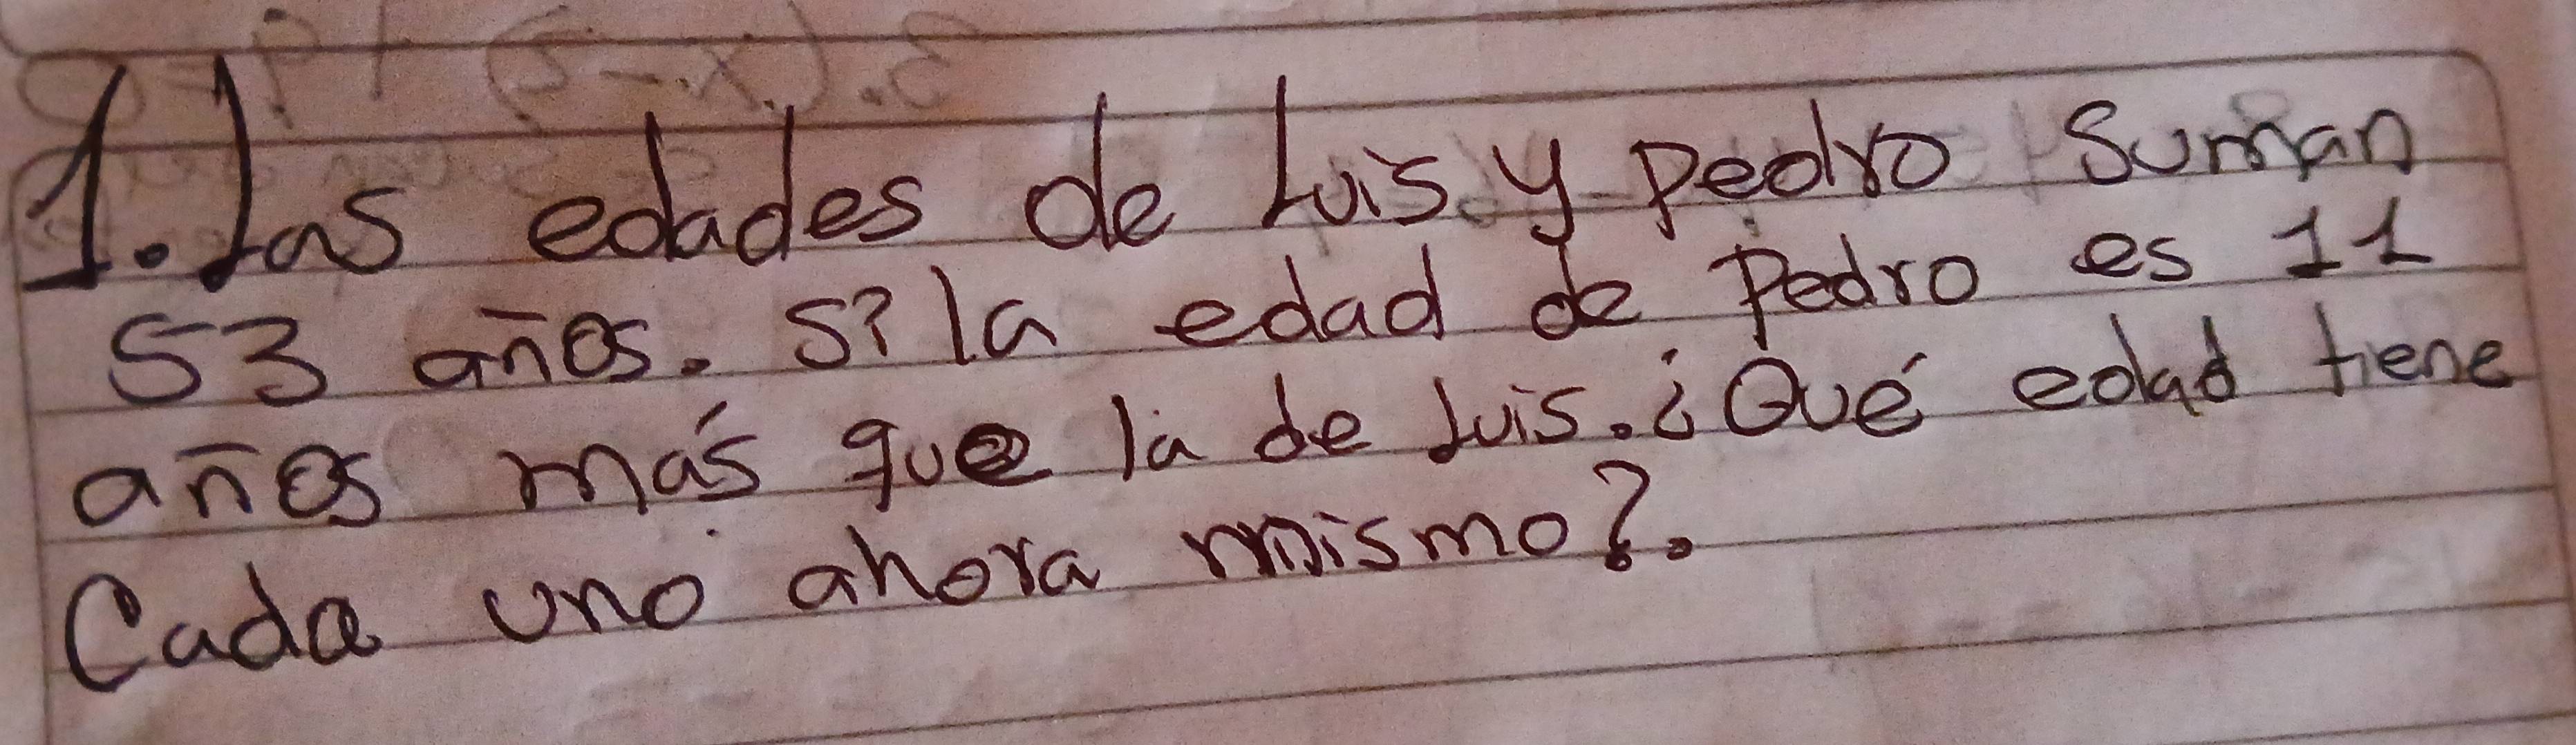 1. Las edades de Luis y pedro Suman
53 años. Si la edad de Pedro es 11
años más que la de Luis. ¿Qué edad tiene
Cada uno ahora mismo?.